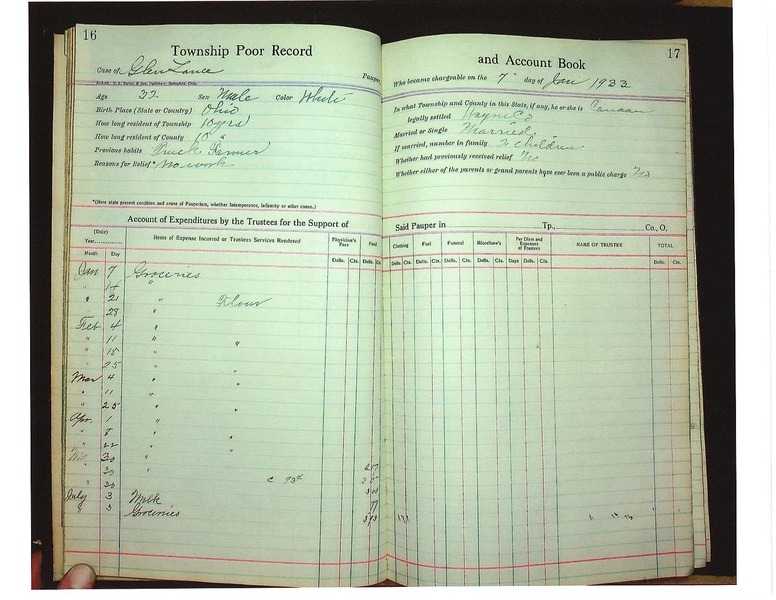 16
Township Poor Record
Case of Glen Lance
Pauper,
Age 32 Sex Male Color White
Birth Place (State or Country) Ohio
How long resident of Township 10 yrs
How long resident of County 10 "
Previous habits Truck Farmer
Reasons for Relief* No work
*(Here state present condition and cause of Pauperism, whether Intemperance, Infamity or other cause.)
Account of Expenditures by the Trustees for the Support of
(Date)
Year
Items of Expense Incurred or Trustees Services Rendered
Physician's Fees
Food
Month Day Dolls. Cts. Dolls. Cts.
Jan 7 Groceries
" 14 "
" 21 " Flour
" 28 "
Feb 4 "
" 11 " "
" 18 "
" 25 " "
Mar 4 " "
" 11 "
" 25 " "
Apr. 1 "
" 8 " "
" 22 "
30 "
" 30 " 217
" 30
July 3 Milk
" 3 Groceries
17
and Account Book
Who became chargeable on the 7" day of Jan 1933
In what Township and County in this State, if any, he or she is Canaan
legally settled Wayne Co
Married or Single Married
If married, number in family 2 children
Whether had previously received relief No
Whether either of the parents or grand parents have ever been a public charge No
Said Pauper in Tp., Co., O.
Clothing Fuel Funeral Miscellane's Per Diem and Expenses of Trustees NAME OF TRUSTEE TOTAL
Dolls. Cts. Dolls. Cts. Dolls. Cts. Dolls. Cts. Days Dolls. Cts. Dolls. Cts.